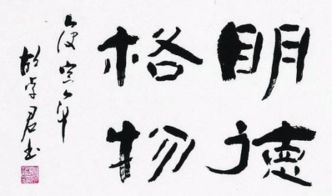 明德
格物
庚寅年
胡学君书